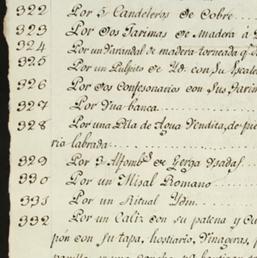 322 Por 5 Candeleros de Cobre
323 Por Dos Tarinas de madera á
324 Por un Varandal de madera torneada q.
325 Por un Pulpito de Yd. con su
326 Por Dos Confesonarios con sus
327 Por Una banca
328 Por una Pila de Agua Vendita, de pie
labrada
329 Por 3 Alfomb.s de Gerga Usadas
330 Por un Misal Romano
331 Por un Ritual Ydm.
332 Por un Caliz con su patena y cu
pón con su tapa, hostiario, Vinageras,